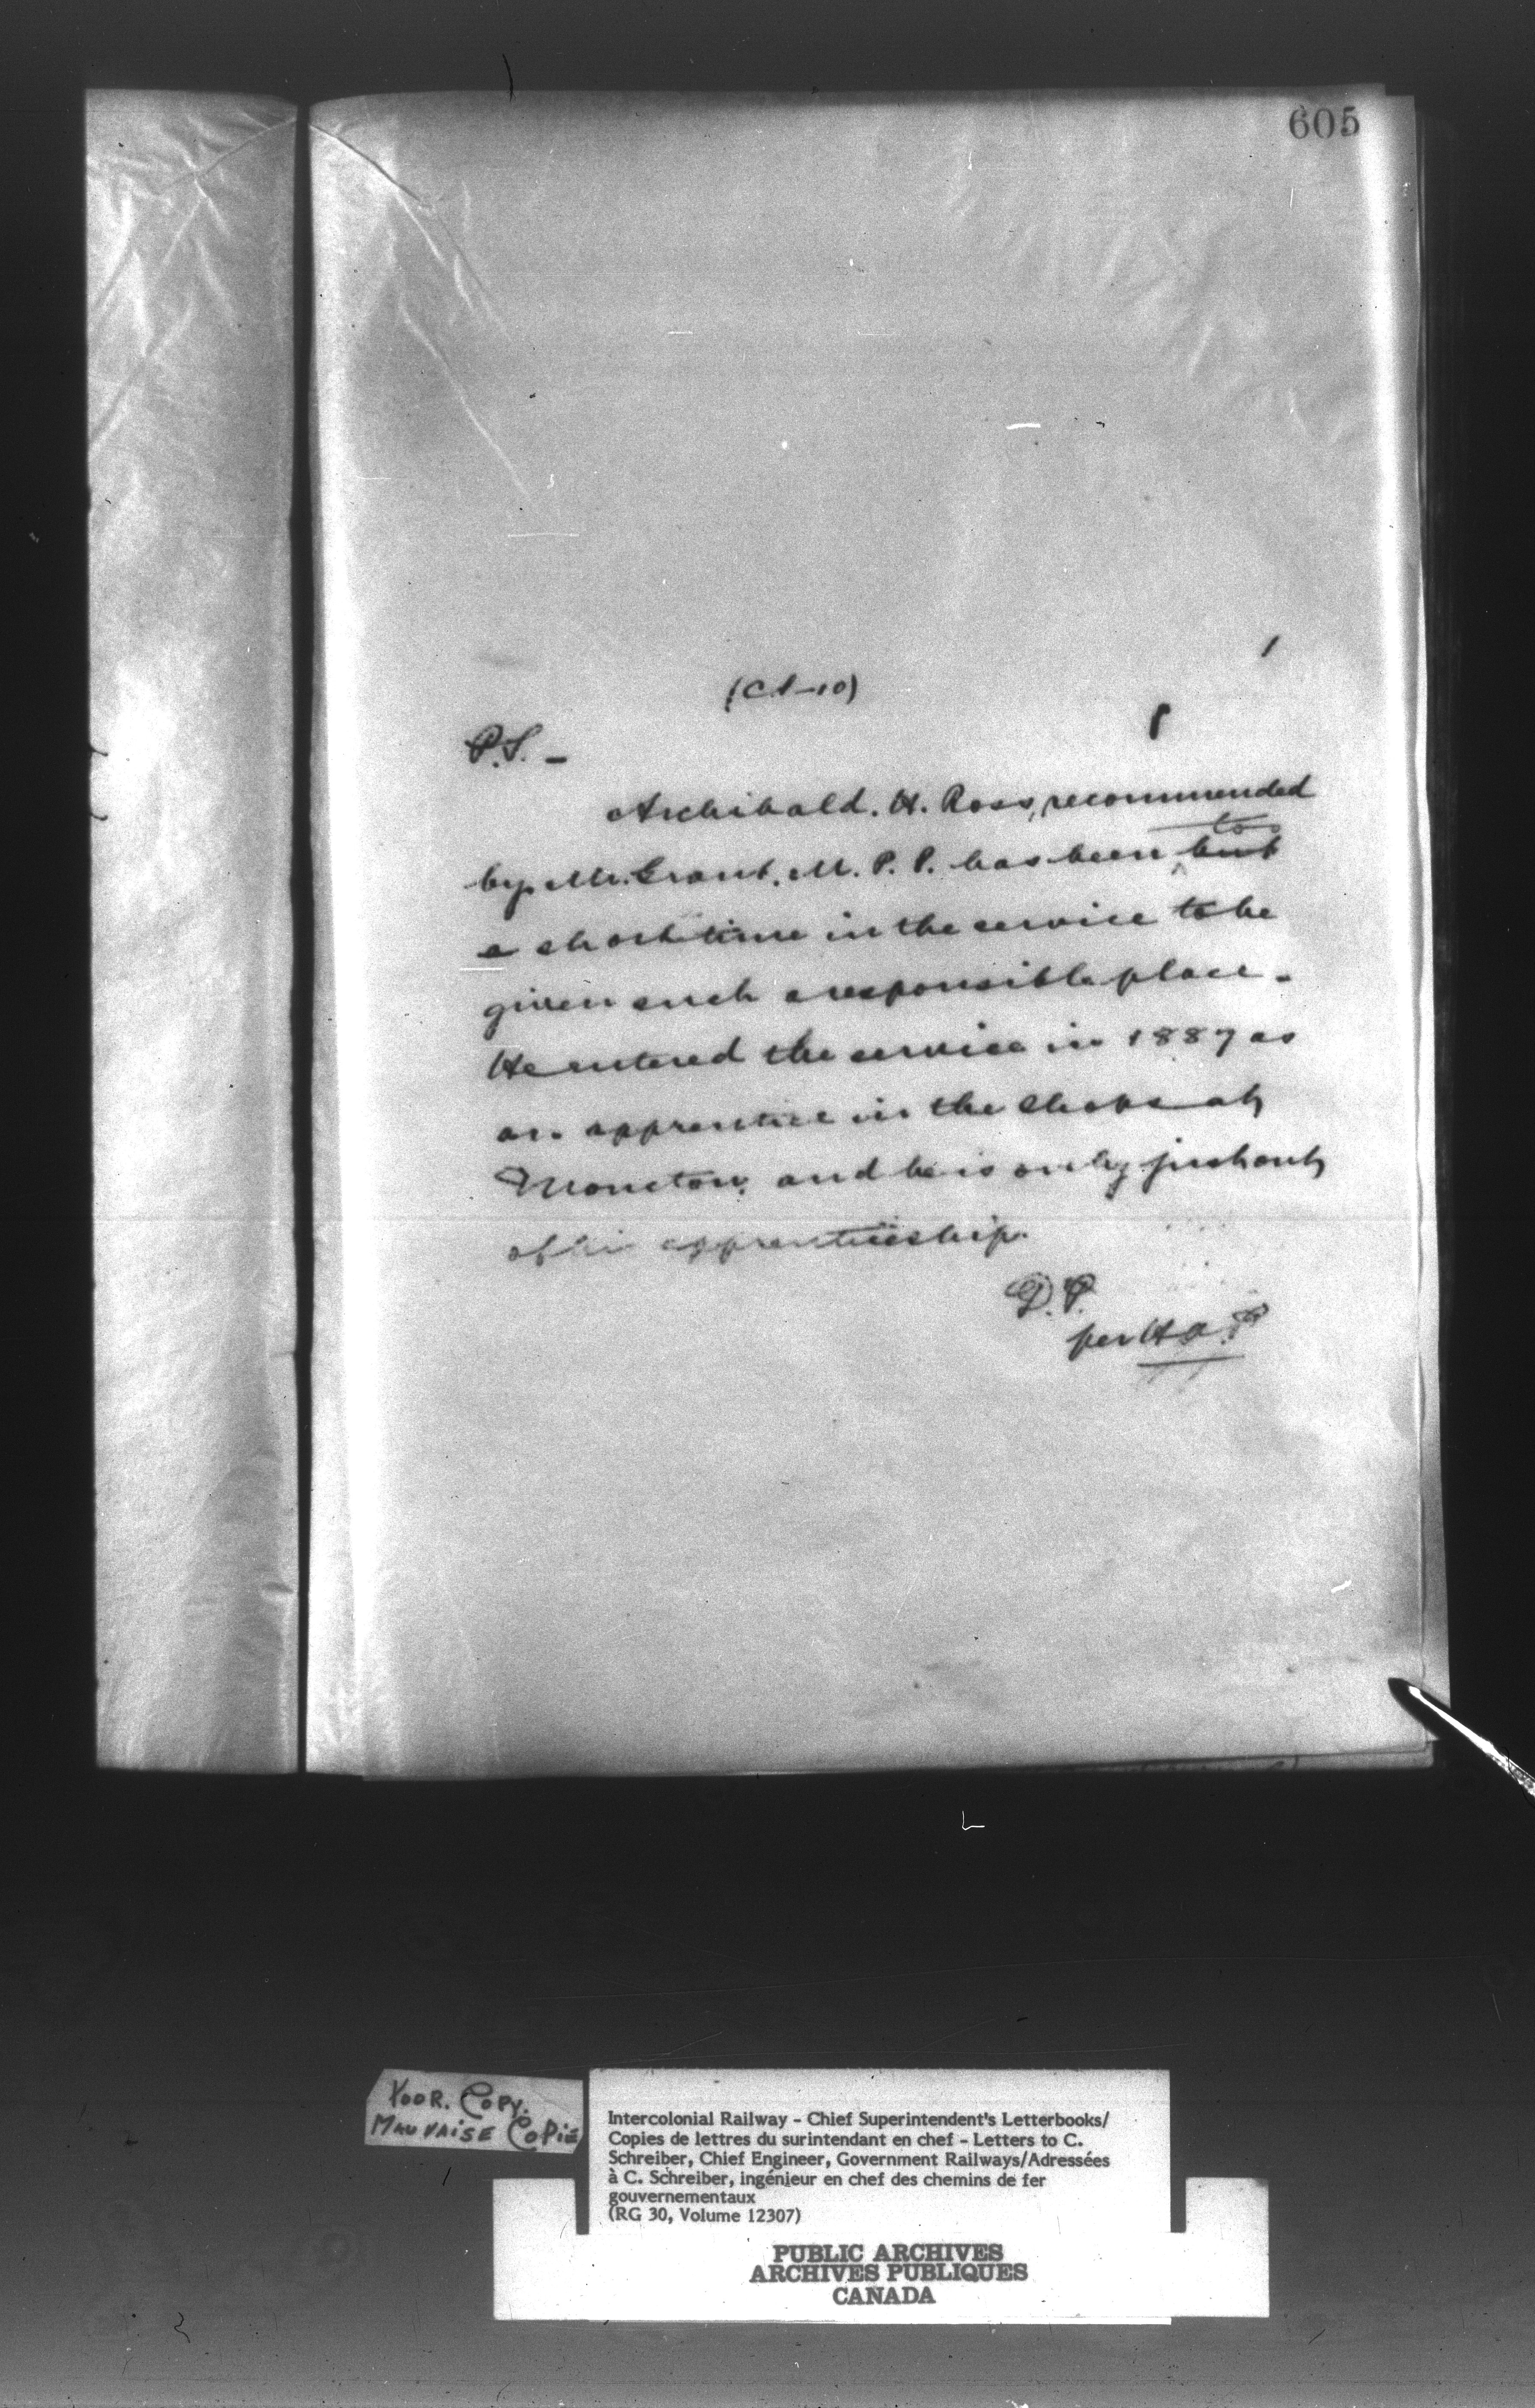 605
P.S. —
Archibald. H. Ross, recommended
too
by Mr. Grant. M. P. P. has been but
a short time in the service to be
given such a responsible place.
He entered the service in 1887 as
an apprentice in the shops at
Moncton, and he is only just out
of his apprenticeship.
D.P.
per H.A.P.
POOR. COPY.
MAUVAISE COPIE
Intercolonial Railway - Chief Superintendent's Letterbooks/
Copies de lettres du surintendant en chef - Letters to C.
Schreiber, Chief Engineer, Government Railways/Adressées
à C. Schreiber, ingénieur en chef des chemins de fer
gouvernementaux
(RG 30, Volume 12307)
PUBLIC ARCHIVES
ARCHIVES PUBLIQUES
CANADA